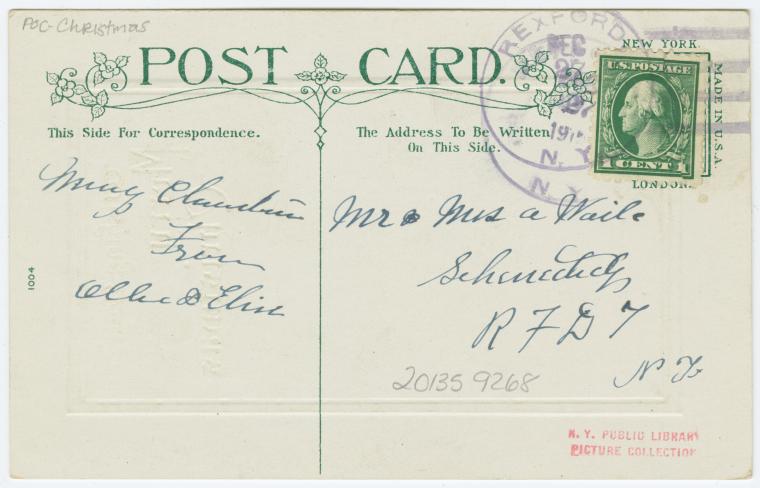 POC-Christmas
POST CARD.
This Side For Correspondence.
The Address To Be Written
On This Side.
NEW YORK.
MADE IN U.S.A.
LONDON.
REXFORD
DEC
27
N. Y.
N. Y.
U.S. POSTAGE
1 CENT 1
Merry Christmas
From
Ollie & Elsie
Mr & Mrs A
Schenectady
R F D 7
N Y
1004
20135 9268
N. Y. PUBLIC LIBRARY
PICTURE COLLECTION